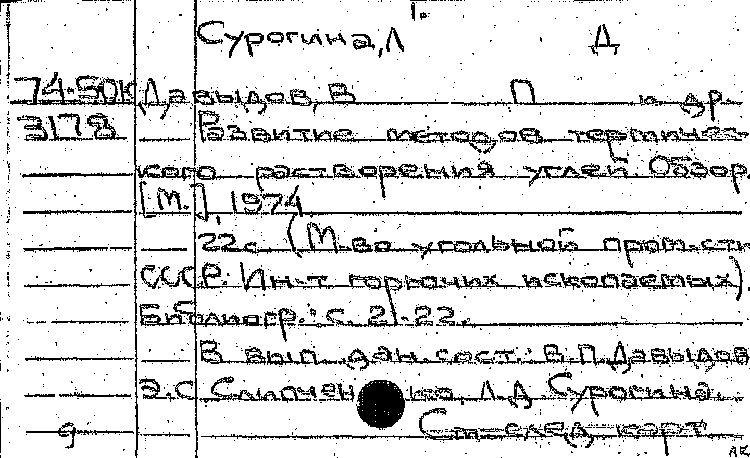 1.
Сурогина, Л Д
74-50К Давыдов, В П и др.
3178 Развитие методов термичес-
кого растворения углей. Обзор.
[М.], 1974
22 с. (М-во угольной пром-сти
СССР. Ин-т горючих ископаемых).
Библиогр.: с. 21-22.
В вып. дан. сост.: В.П. Давыдов
Э.С Слипченко, Л.Д Сурогина.
9 См. след карт.